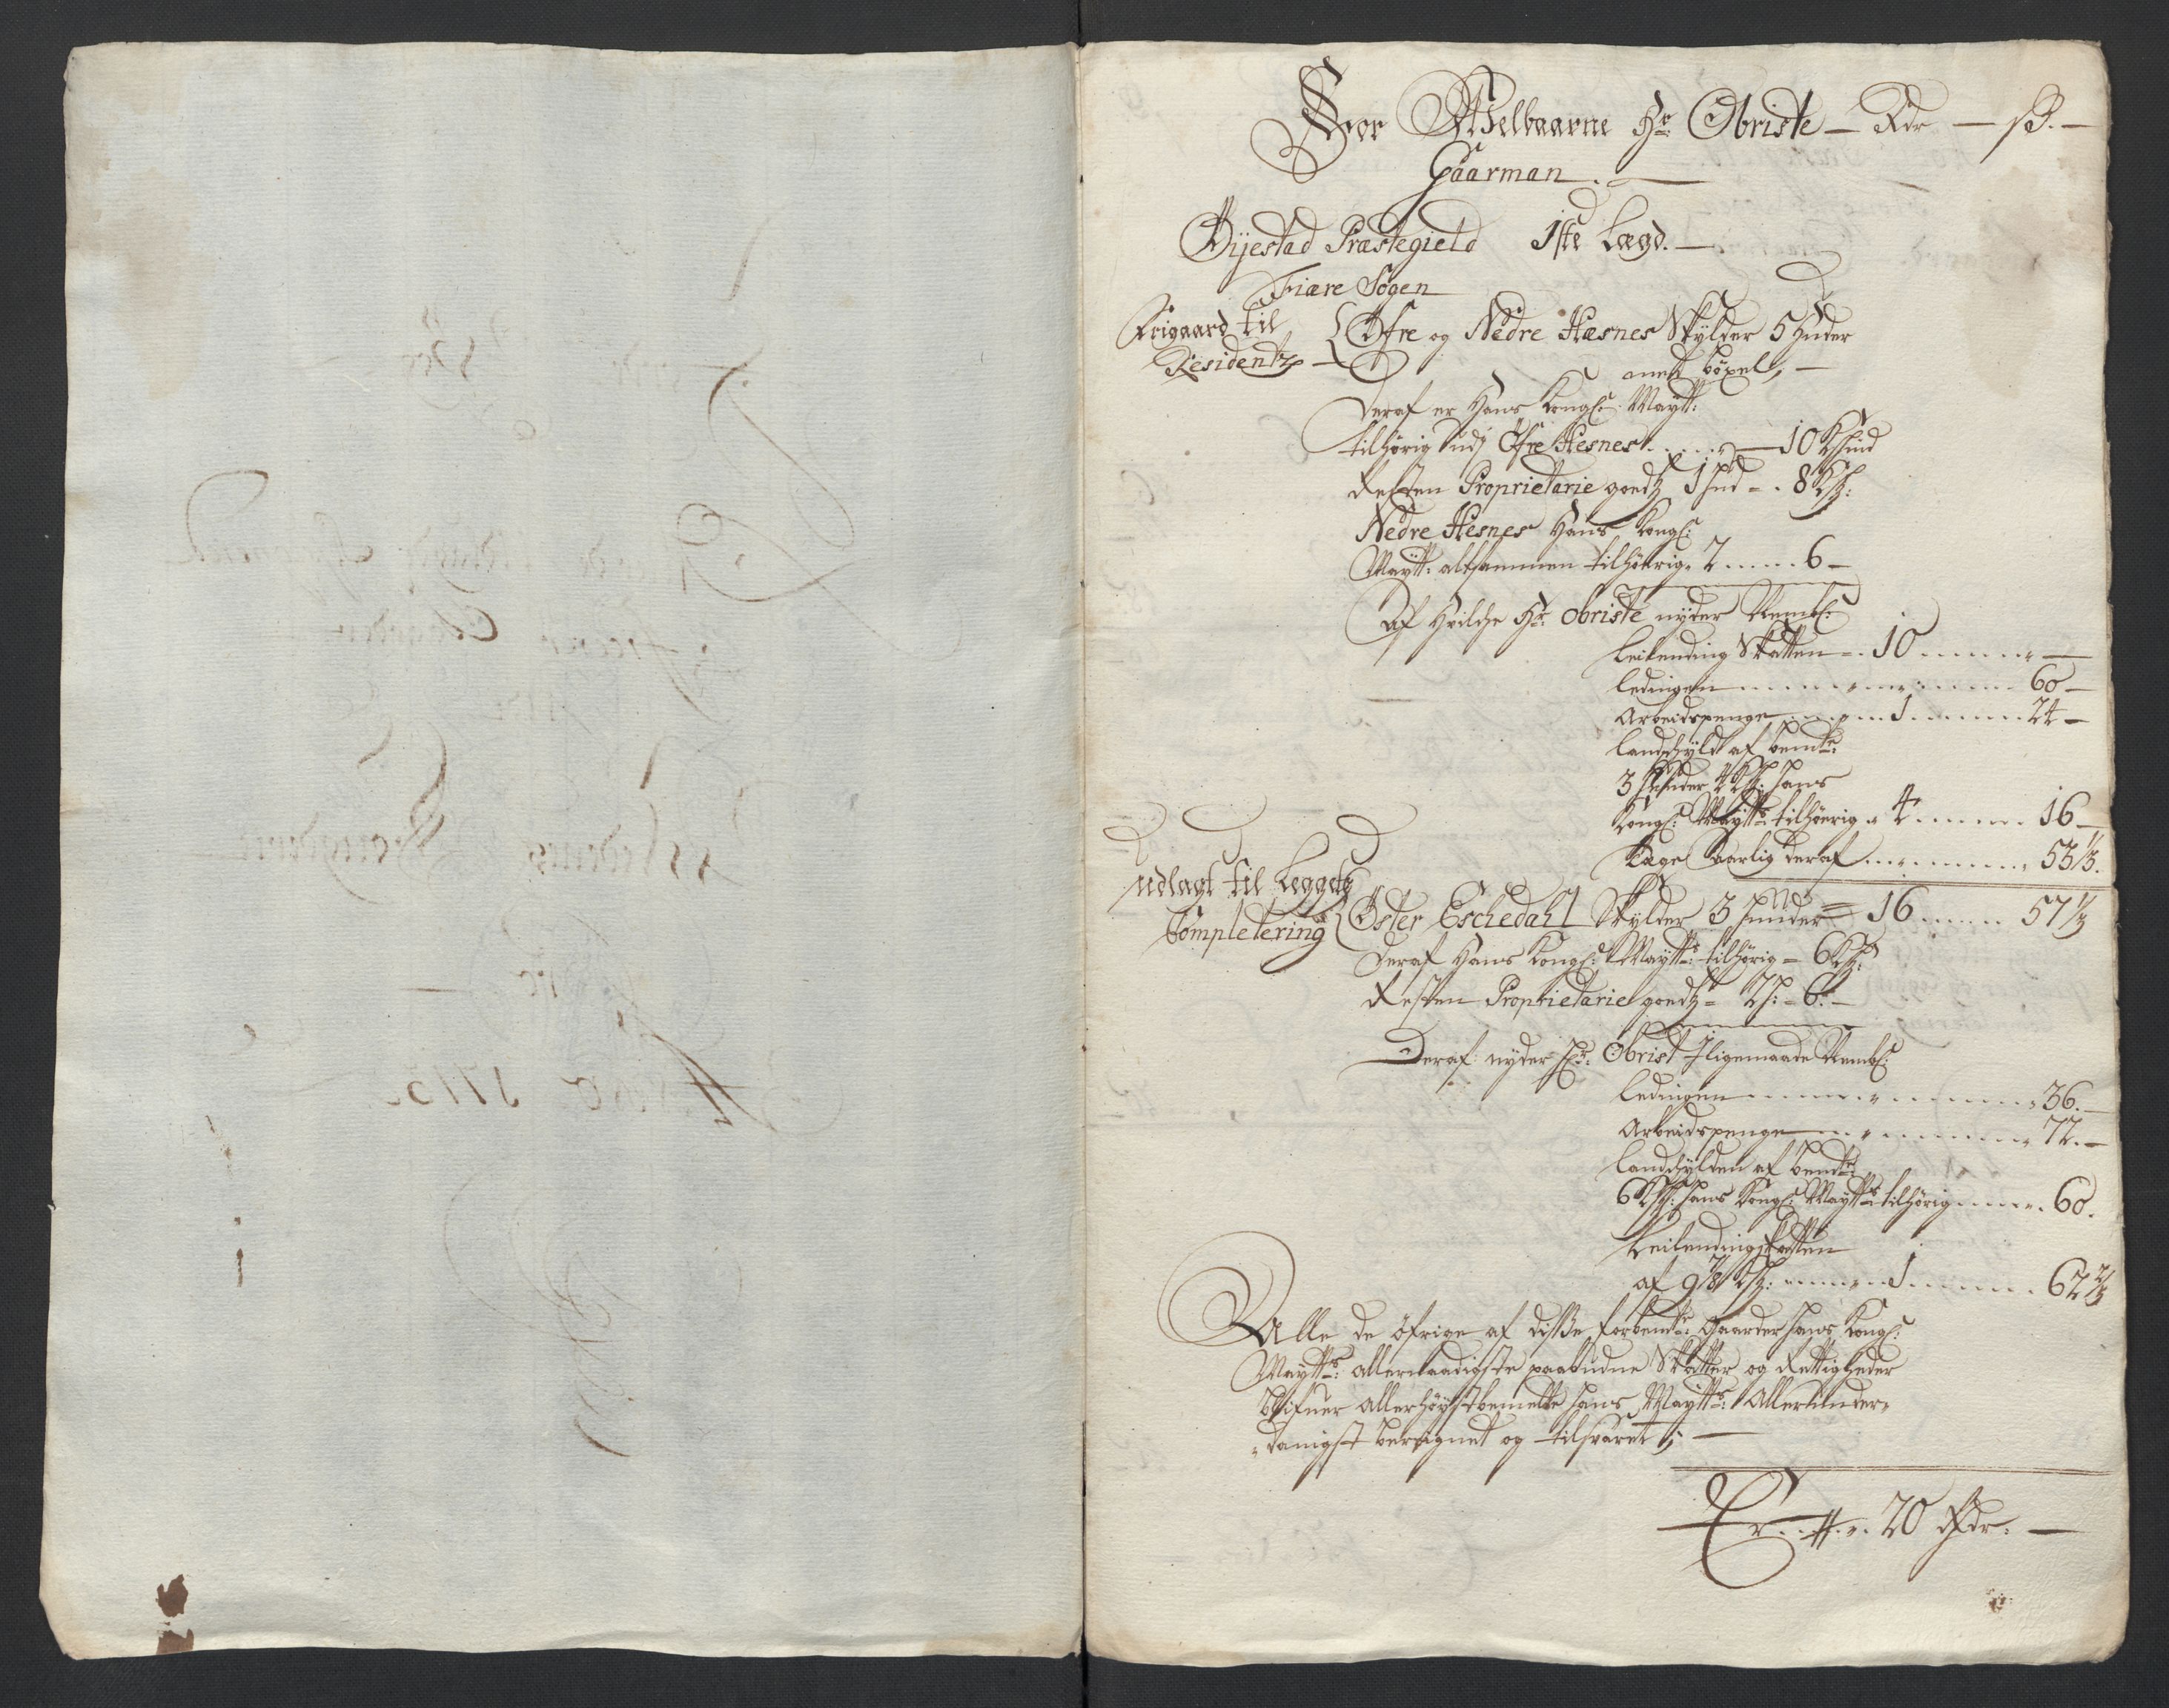 For Welbaarne Hr Obriste — Rdr — ß. —
Gaarman. —
Øijestad Præstegield 1ste Lægd. —
Fiære Sogen
Frigaard til
Residentz —
Øfre og Nedre Hæsnes Skylder 5 Huder
med böxel, —
Deraf er Hans Kongl: Maytt:
tilhørig udj Øfre Hesnes . . . . — 10 Kshud
Resten Proprietarie goedtz 1 hud - . 8 Ks:
Nedre Hesnes Hans Kongl:
Maytt: altsammen tilhörig. 2 . . . . . 6 —
Af hvilche Hr. Obriste nyder Nembl:
Leilending Skatten - . 10 . . . . . . . —
Ledingen . . . . . . . . . . . . 60 —
Arbeidspenge . . . . . . 1 . . . . . . 24 —
Landschyld af bemte:
3 Huder 4 Ks: Hans
Kongl: Maytts tilhörig . 4 . . . . . . 16 —
Tage Aarlig deraf . . . . . . . . . 53 1/3.
udlagt til Leggetz
Completering
Öster Eschedahl Skylder 3 Huuder = 16 . . . . . . 57 1/3
Deraf Hans Kongl: Maytts: tilhørig — 6 Ks:
Resten Proprietarie goedtz - 2 H: - 6. —
Deraf nyder Hr: Obrist Iligemaade Nembl:
Ledingen . . . . . . . . . . . . 36. —
Arbeidspenge . . . . . . . . . . . 72. —
Landschylden af bemte
6 Ks: Hans Kongl: Maytts: tilhørig . . . . . 60.
Leilendingskatten
af 9 7/8 Ks: . . . . . . 1 . . . . . . 62 2/3
Alle de öfrige af disse forbemte: Gaarder Hans Kongl:
Maytts: allernaadigste paabudne Skatter og Rettigheder
blifuer allerhöystbemelte Hans Maytts: Allerunder-
-danigst beregnet og tilsvaret; —
Er . . . . 20 Rdr. —